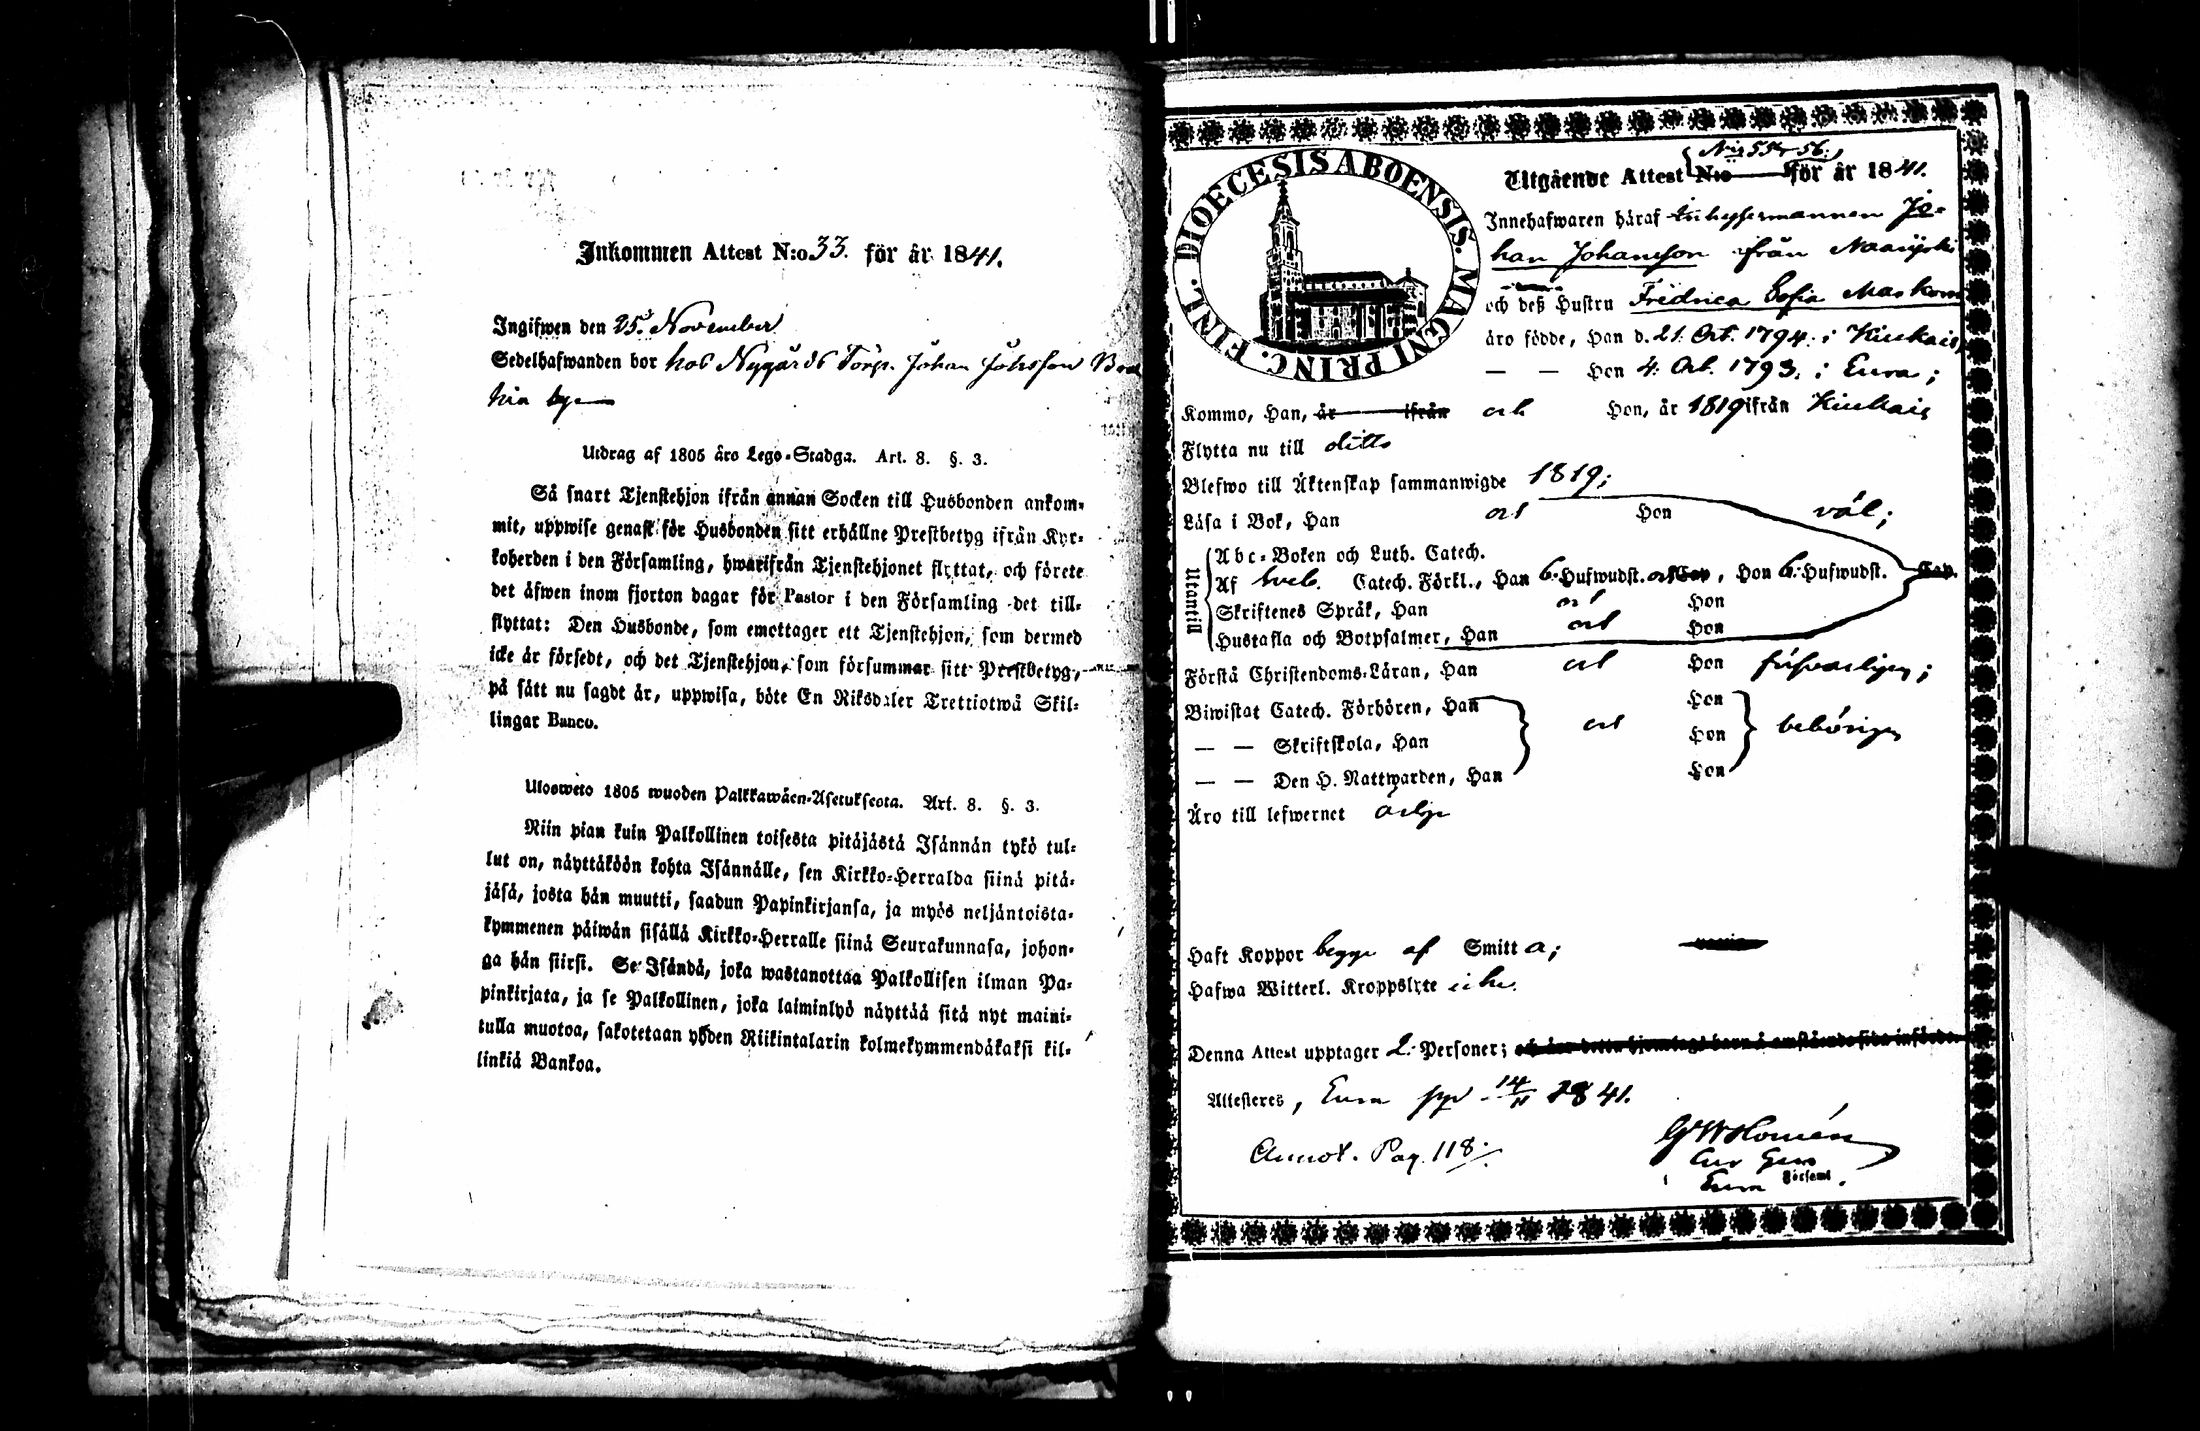 Inkommen Attest N:o 33. för år 1841.
Ingifwen den 25. November
Sedelhafwanden bor hos Nygårds Torp. Johan Johsson
by
Utdrag af 1805 års Lego-Stadga. Art. 8. §. 3.
Så snart Tjenstehjon ifrån annan Socken till Husbonden ankom-
mit, uppwise genast för Husbonden sitt erhållne Prestbetyg ifrån Kyr-
koherden i den Församling, hwarifrån Tjenstehjonet flyttat, och förete
det äfwen inom fjorton dagar för Pastor i den Församling det till-
flyttat: Den Husbonde, som emottager ett Tjenstehjon, som dermed
icke är försedt, och det Tjenstehjon, som försummar sitt Prestbetyg,
på sätt nu sagdt är, uppwisa, böte En Riksdaler Trettiotwå Skil-
lingar Banco.
Ulosweto 1805 wuoden Palkkawäen-Asetuksesta. Art. 8. §. 3.
Niin pian kuin Palkollinen toisesta pitäjästä Isännän tykö tul-
lut on, näyttäköön kohta Isännälle, sen Kirkko-Herralda siinä pitä-
jäsä, josta hän muutti, saadun Papinkirjansa, ja myös neljäntoista-
kymmenen päiwän sisällä Kirkko-Herralle siinä Seurakunnasa, johon-
ga hän siirsi. Se Isändä, joka wastanottaa Palkollisen ilman Pa-
pinkirjata, ja se Palkollinen, joka laiminlyö näyttää sitä nyt maini-
tulla muotoa, sakotetaan yhden Riikintalarin kolmekymmendäkaksi kil-
linkiä Bankoa.
DIOECESIS ABOENSIS. MAGNI PRINC. FINL.
N:is 55 & 56.
Utgående Attest N:o för år 1841.
Innehafwaren häraf inhysesmannen Jo-
han Johansson från
och deß Hustru Fredrica Sofia
äro födde, Han d. 21. Oct. 1794. i Kiukais,
— — Hon 4. Oct. 1793. i Eura;
Kommo, Han, är ifrån och Hon, år 1819 ifrån Kiukais
Flytta nu till ditto
Blefwo till Äktenskap sammanwigde 1819;
Läsa i Bok, Han och Hon väl;
Utantill
Abc-Boken och Luth. Catech.
Af Sveb. Catech. Förkl., Han 6. Hufwudst. och Cap, Hon 6. Hufwudst. Cap.
Skriftenes Språk, Han och Hon
Hustafla och Botpsalmer, Han och Hon
Förstå Christendoms-Läran, Han och Hon försvarligen;
Biwistat Catech. Förhören, Han Hon
— — Skriftskola, Han och Hon behörigen
— — Den H. Nattwarden, Han Hon
Äro till lefwernet ärlige
Haft Koppor begge af Smitta;
Hafwa Witterl. Kroppslyte icke.
Denna Attest upptager 2. Personer; och äro detta hjonelags barn å omstående sida införde.
Attesteres, Eura pgd 14/11 1841.
Annot. Pag. 118
G W Homén
Eura Församl.